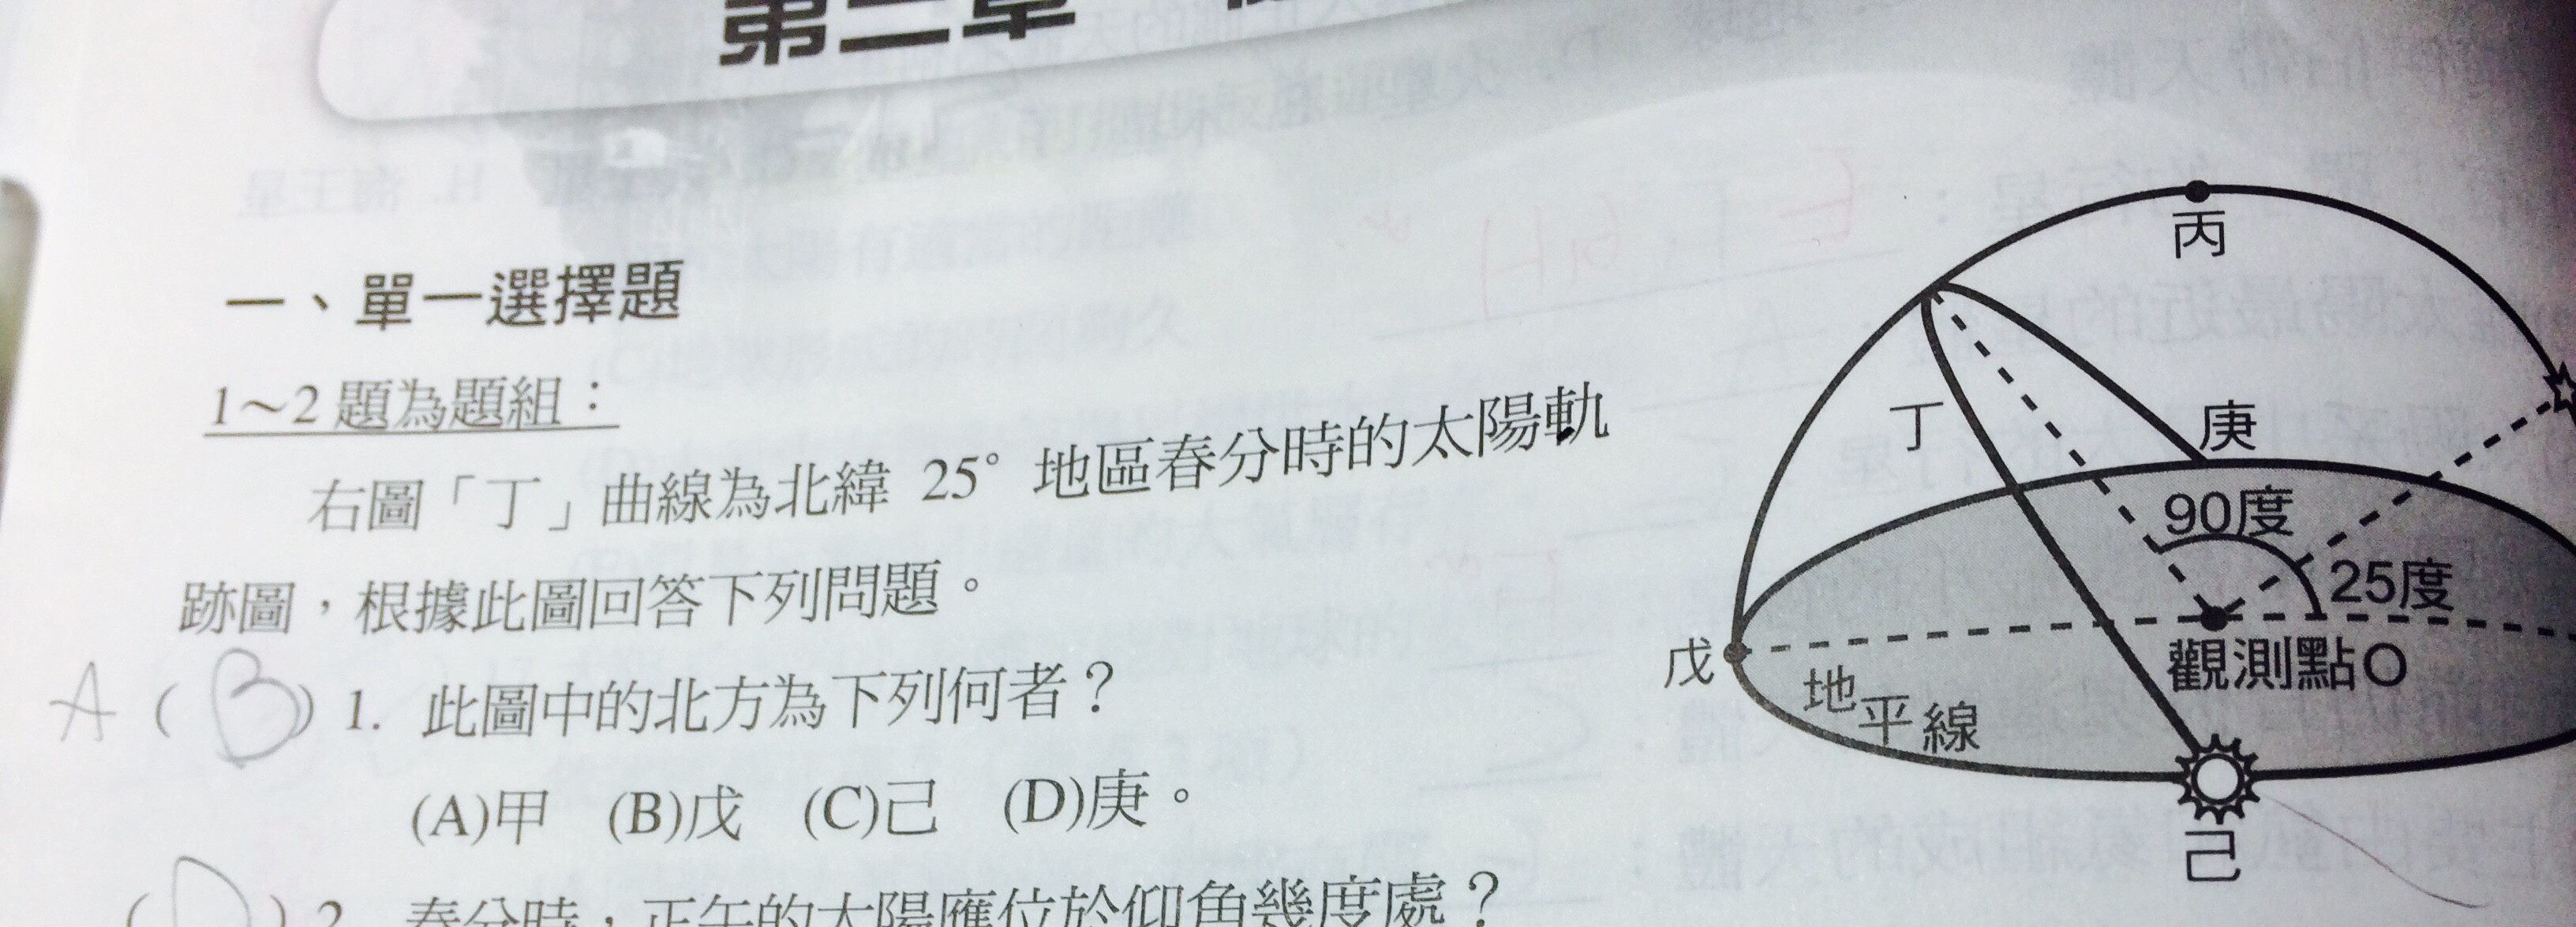 第二章
一、單一選擇題
1～2 題為題組：
右圖「丁」曲線為北緯 25° 地區春分時的太陽軌
跡圖，根據此圖回答下列問題。
A ( B ) 1. 此圖中的北方為下列何者？
(A)甲 (B)戊 (C)己 (D)庚。
( D ) 2. 春分時，正午的太陽應位於仰角幾度處？
丙
丁
庚
90度
25度
戊
觀測點O
地平線
己